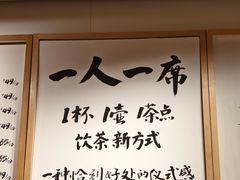 一人一席
1杯 1壶 1茶点
饮茶新方式
一种恰到好处的仪式感